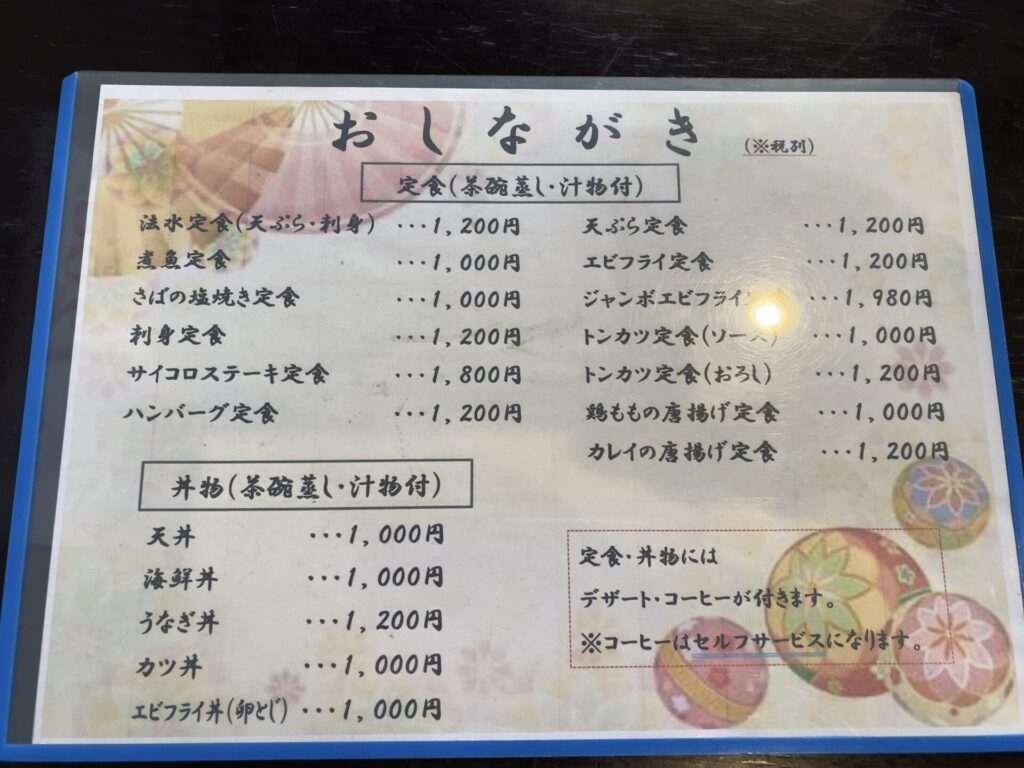 おしながき (※税別)
定食(茶碗蒸し・汁物付)
法水定食(天ぷら・刺身) ・・・1,200円
煮魚定食 ・・・1,000円
さばの塩焼き定食 ・・・1,000円
刺身定食 ・・・1,200円
サイコロステーキ定食 ・・・1,800円
ハンバーグ定食 ・・・1,200円
天ぷら定食 ・・・1,200円
エビフライ定食 ・・・1,200円
ジャンボエビフライ ・・・1,980円
トンカツ定食(ソース) ・・・1,000円
トンカツ定食(おろし) ・・・1,200円
鶏ももの唐揚げ定食 ・・・1,000円
カレイの唐揚げ定食 ・・・1,200円
丼物(茶碗蒸し・汁物付)
天丼 ・・・1,000円
海鮮丼 ・・・1,000円
うなぎ丼 ・・・1,200円
カツ丼 ・・・1,000円
エビフライ丼(卵とじ) ・・・1,000円
定食・丼物には
デザート・コーヒーが付きます。
※コーヒーはセルフサービスになります。